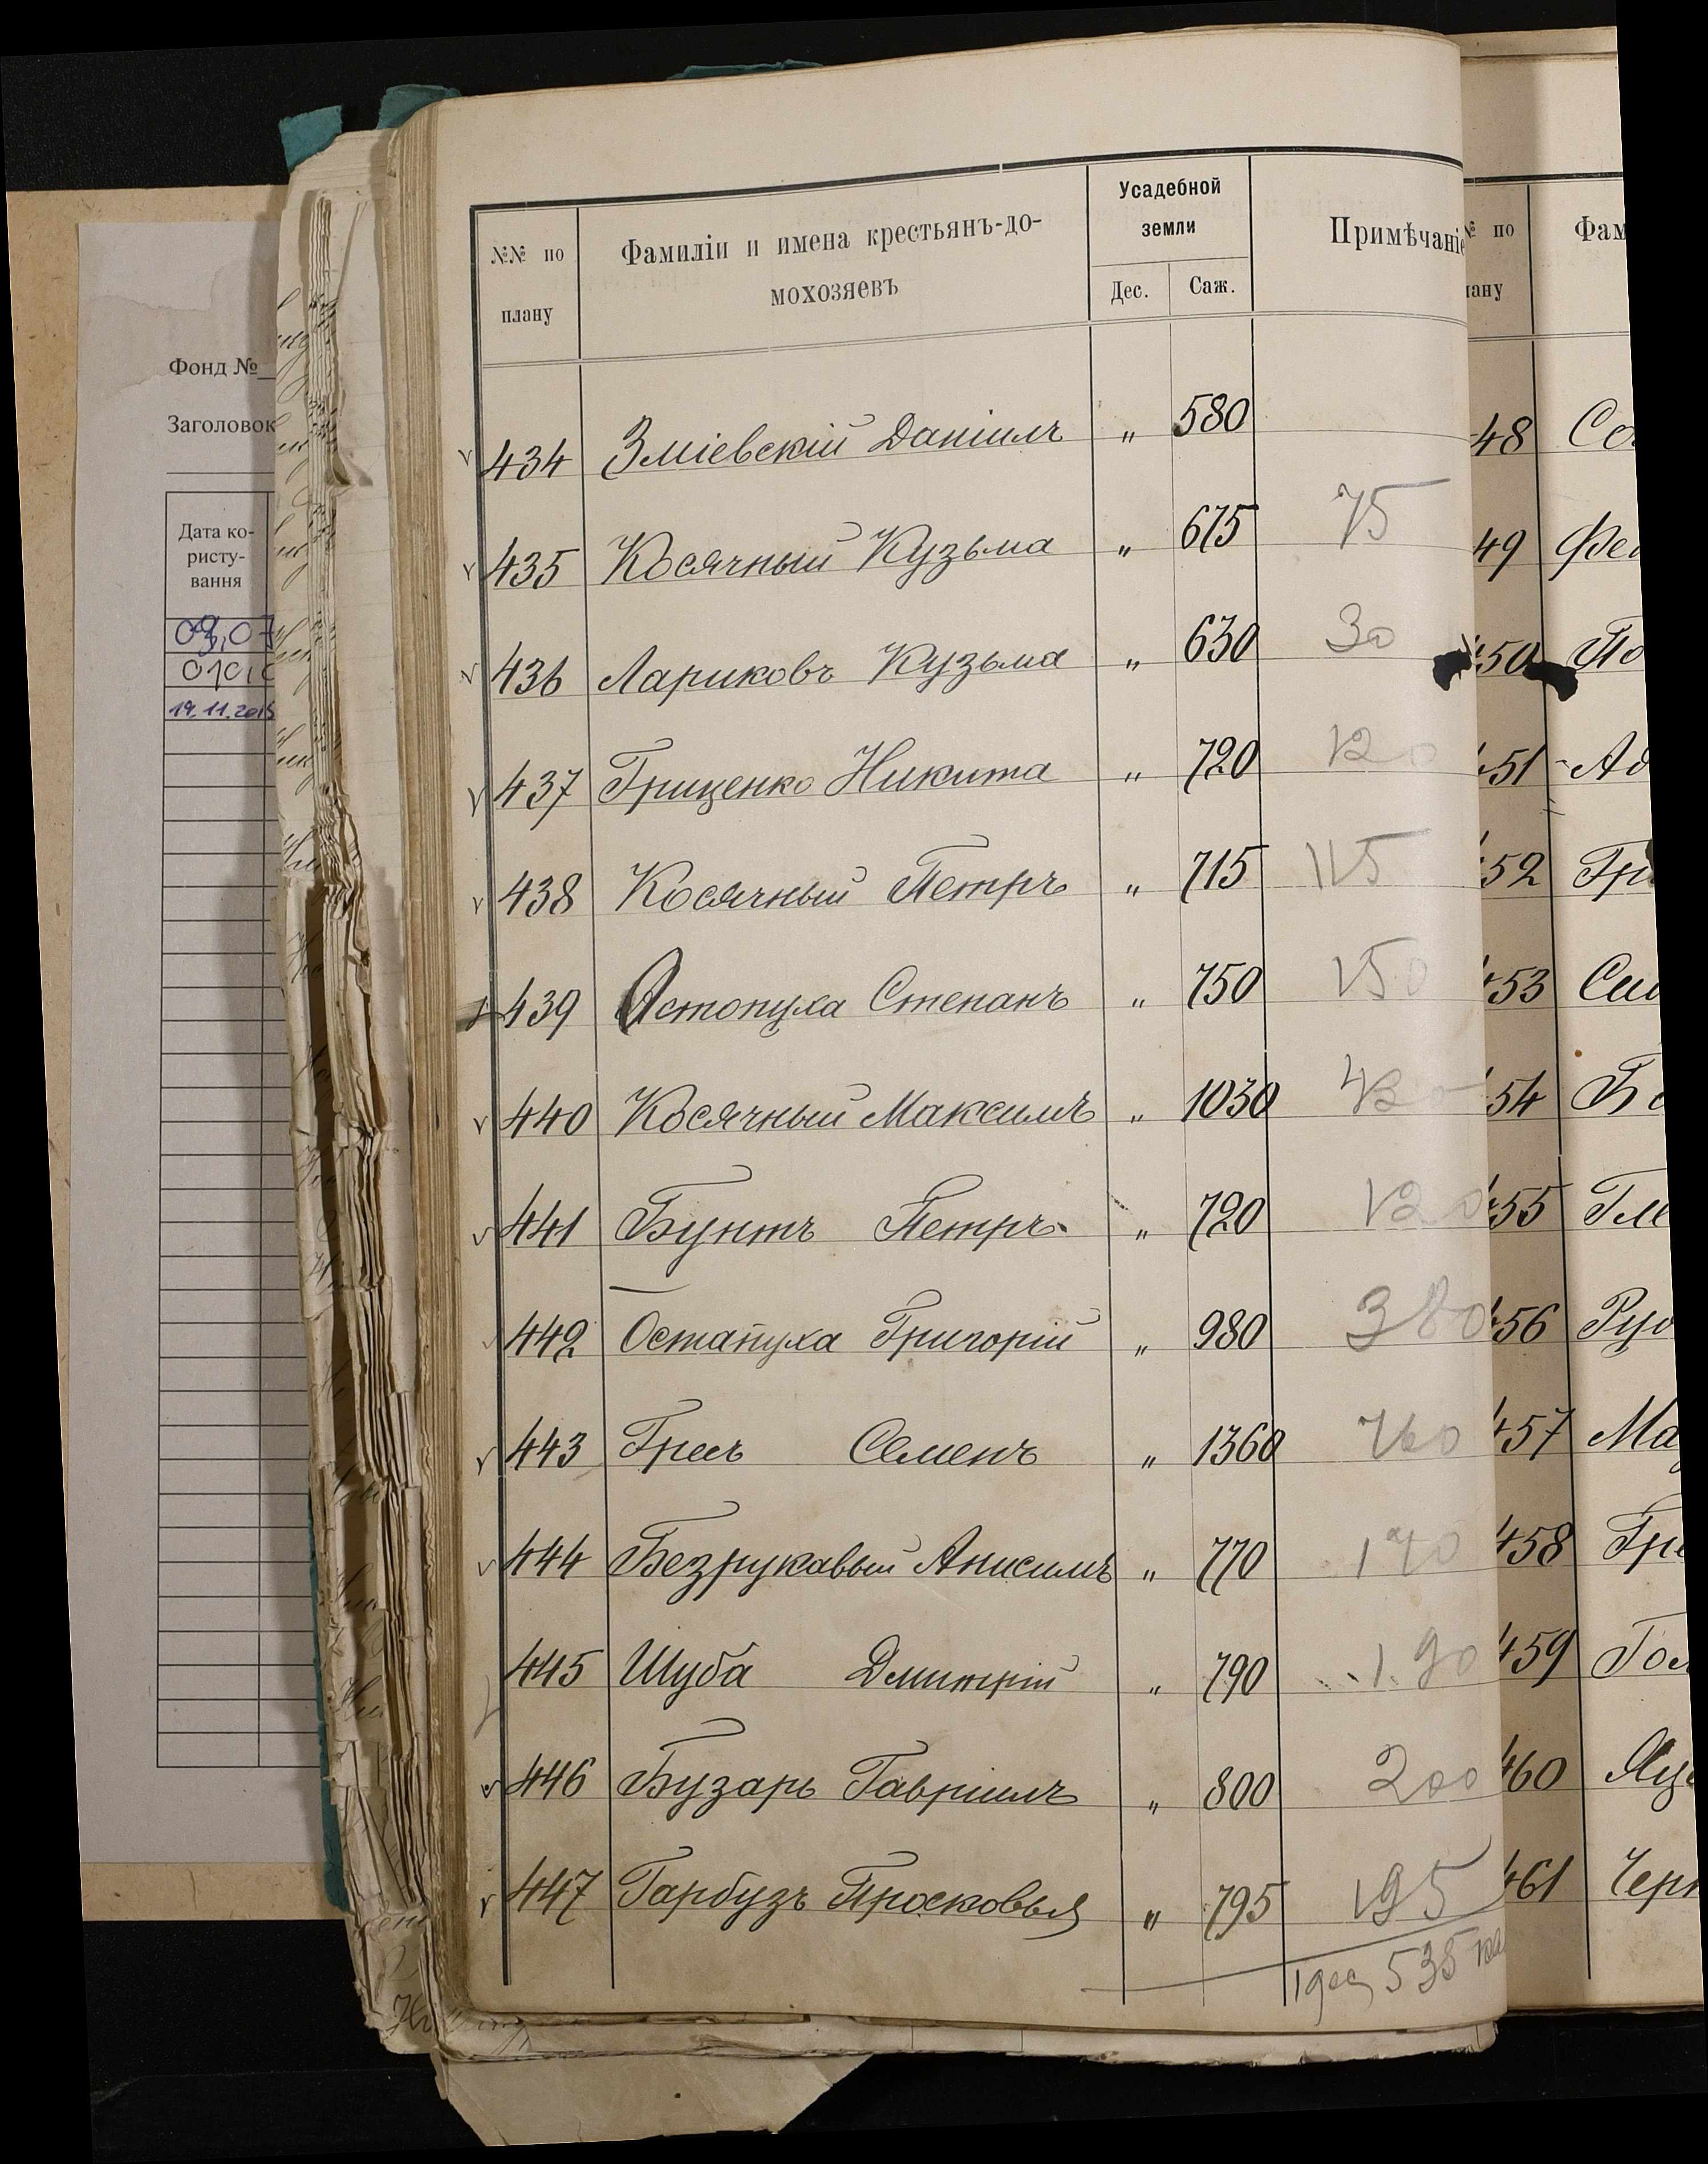 Фонд №
Заголовок
Дата ко-
ристу-
вання
09.07
19.11.2015
№№ по плану
Фамиліи и имена крестьянъ-до-
мохозяевъ
Усадебной
земли
Дес. Саж.
Примѣчаніе
434 Зміевскій Даніилъ " 580
435 Косячный Кузьма " 675 75
436 Лариковъ Кузьма " 630 30
437 Гриценко Никита " 720 120
438 Косячный Петръ " 715 115
439 Остопуха Степанъ " 750 150
440 Косячный Максимъ " 1030 430
441 Бунтъ Петръ " 720 120
442 Остапуха Григорій " 980 380
443 Гресь Семенъ " 1360 760
444 Безрукавый Анисимъ " 770 170
445 Шуба Дмитрій " 790 190
446 Бузарь Гавріилъ " 800 200
447 Гарбузъ Просковья " 795 195
1 дес 535
№ по Фам
лану
48 Со
49 Фе
450 По
451 Ад
452 Гр
453 Си
454 Бо
455 Гл
456 Ру
457 Ма
458 Гр
459 Гол
460 Яц
461 Черн